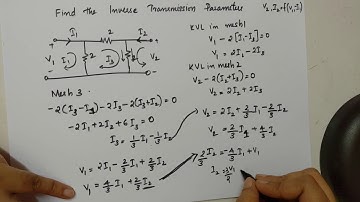 Find the Inverse Transmission Parameters
V₂, I₂ = f(V₁, I₁)
I₁ 2 I₂
V₁ I₁ 2 I₃ 2 I₂ V₂
KVL in mesh 1
V₁ - 2[I₁-I₃] = 0
V₁ = 2I₁ - 2I₃
KVL in mesh 2
V₂ - 2(I₂+I₃) = 0
V₂ = 2I₂ + 2I₃
Mesh 3.
-2(I₃-I₁) - 2I₃ - 2(I₃+I₂) = 0
-2I₁ + 2I₂ + 6I₃ = 0
I₃ = 1/3 I₁ - 1/3 I₂
V₂ = 2I₂ + 2/3 I₁ - 2/3 I₂
V₂ = 2/3 I₁ + 4/3 I₂
V₁ = 2I₁ - 2/3 I₁ + 2/3 I₂
V₁ = 4/3 I₁ + 2/3 I₂
2/3 I₂ = -4/3 I₁ + V₁
I₂ = 3V₁